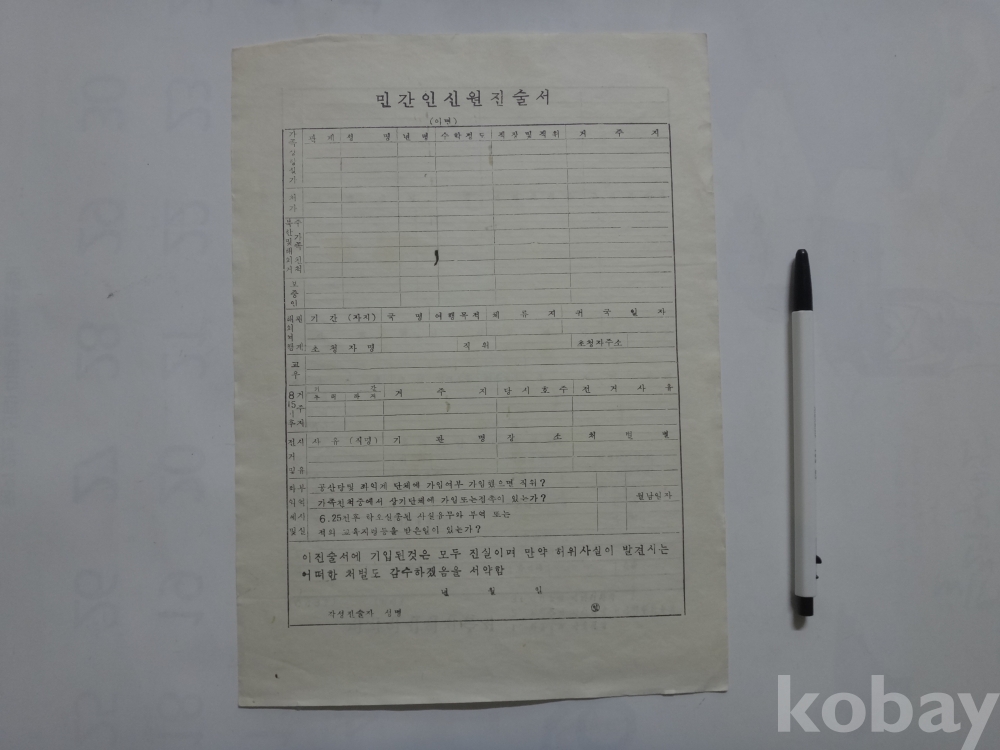 민간인신원진술서
(이면)
관계 성 명 년령 수학정도 직장및직위 거 주 지
보증인
기간 (자지) 국 명 여행목적 체 류 지 귀 국 일 자
초 청 자 명 직 위 초청자주소
교우
8 15 거주
거 주 지 당시호주 전 거 사 유
사 유 (죄명) 기 관 명 장 소 처 벌 별
공산당및 좌익계 단체에 가입여부 가입했으면 직위?
가족친척중에서 상기단체에 가입또는접촉이 있는가? 월남일자
6.25전후 학소실종된 사실유무와 부역 또는
적의 교육지령등을 받은일이 있는가?
이진술서에 기입된것은 모두 진실이며 만약 허위사실이 발견시는
어떠한 처벌도 감수하겠음을 서약함
년 월 일
작성진술자 성명
kobay